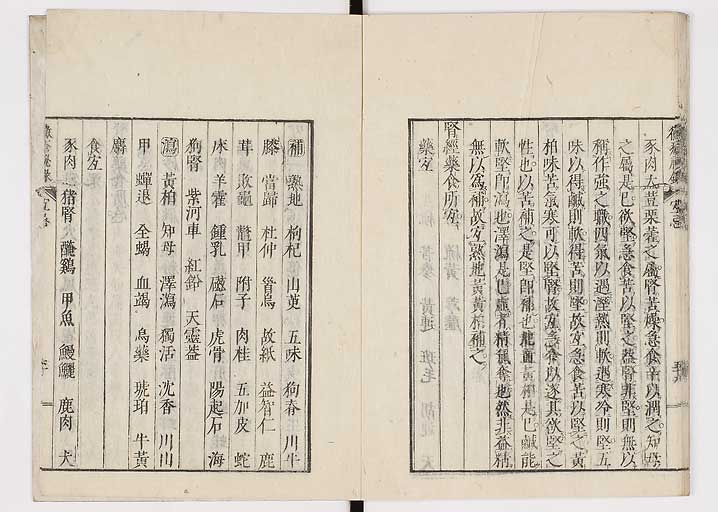 豕肉大荳栗藿之屬腎苦燥急食辛以潤之知母
之屬是已欲堅急食苦以堅之蓋腎非堅則無以
稱作強之職四氣以遇溼熱則軟遇寒冷則堅五
味以得鹹則軟得苦則堅故宜急食苦以堅之黃
柏味苦氣寒可以堅腎故宜急食以遂其欲堅之
性也以苦補之是堅即補也黃柏是已鹹能
軟堅即瀉也澤瀉是已虛者精氣奪也然非益精
無以為補故宜熟地黃黃柏補之
腎經藥食所宜
藥宜
補 熟地 枸杞 山茰 五味 狗春 川牛
膝 當歸 杜仲 首烏 故紙 益智仁 鹿
茸 敗龜 鱉甲 附子 肉桂 五加皮 蛇
床 羊藿 鍾乳 磁石 虎骨 陽起石 海
狗腎 紫河車 紅鉛 天靈蓋
瀉 黃柏 知母 澤瀉 獨活 沈香 川山
甲 蟬退 全蝎 血竭 烏藥 琥珀 牛黃
麝
食宜
豕肉 猪腎 醃鷄 甲魚 鰻鱺 鹿肉 犬